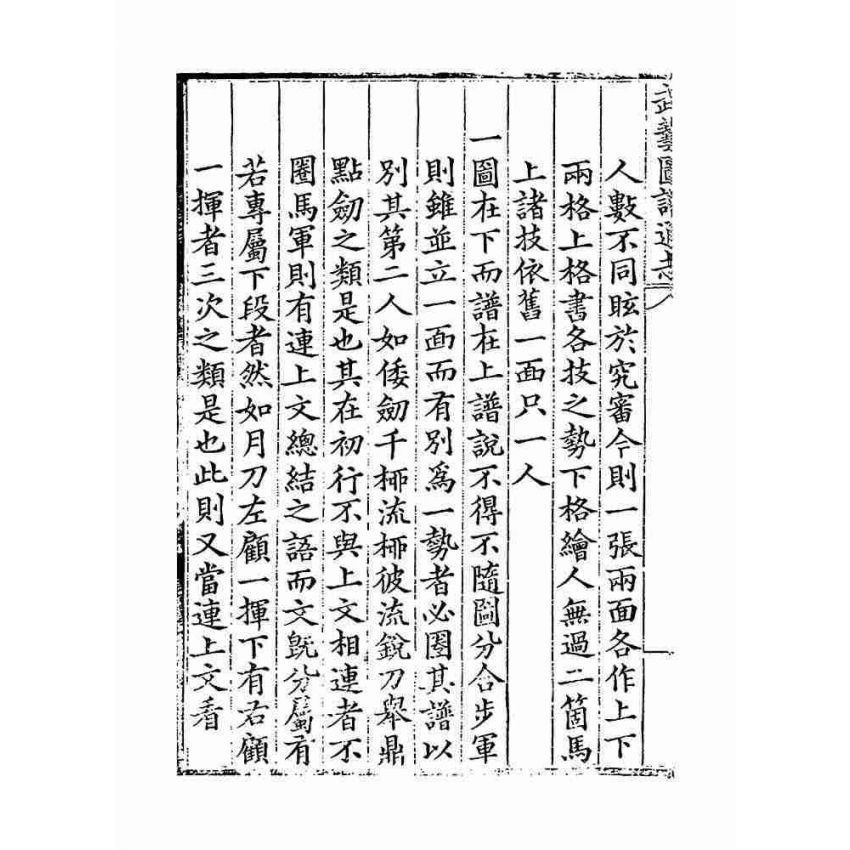 武藝圖譜通志
人數不同眩於究審今則一張兩面各作上下
兩格上格書各技之勢下格繪人無過二箇馬
上諸技依舊一面只一人
一圖在下而譜在上譜說不得不隨圖分合步軍
則雖並立一面而有別爲一勢者必圈其譜以
別其第二人如倭劒千桞流桞彼流銳刀擧鼎
點劒之類是也其在初行不與上文相連者不
圈馬軍則有連上文總結之語而文旣分屬有
若專屬下段者然如月刀左顧一揮下有右顧
一揮者三次之類是也此則又當連上文看